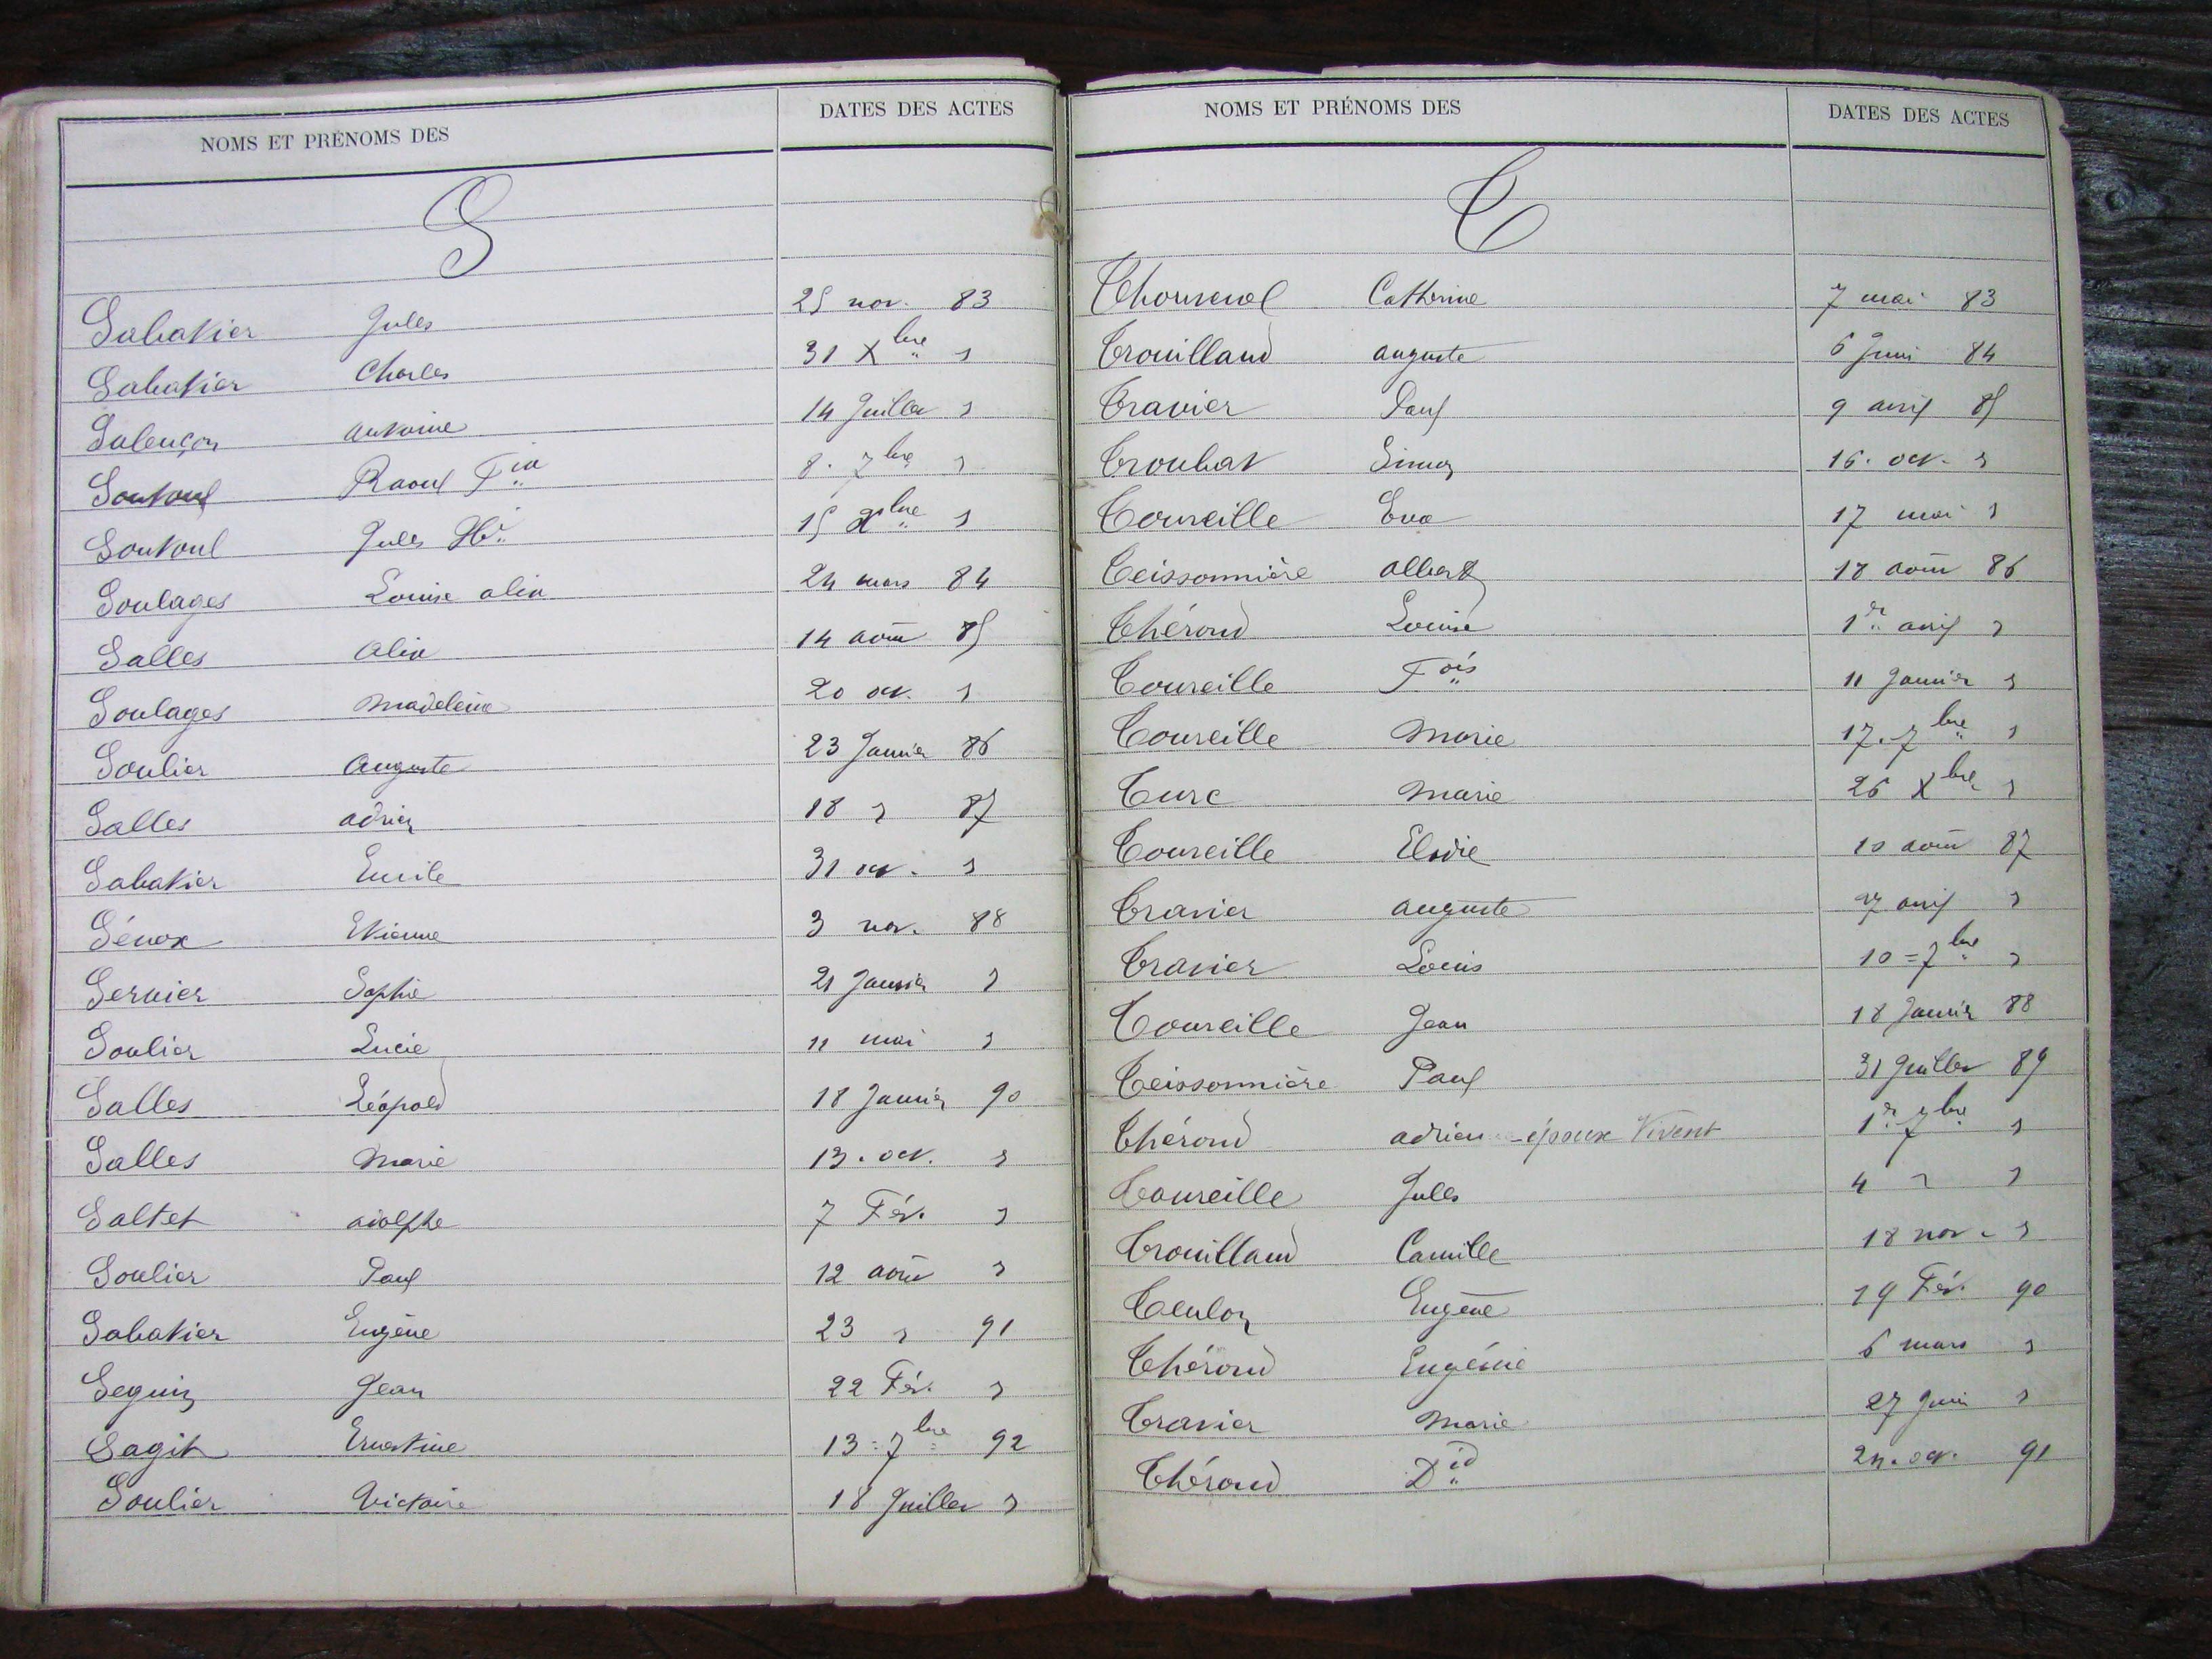 NOMS ET PRÉNOMS DES DATES DES ACTES
S
Sabatier Jules 25 nov. 83
Sabatier Charles 31 Xbre "
Salençon antoine 14 Juillet "
Soutoul Raoul 8. 7bre "
Soutoul Jules 15 Xbre "
Soulages Louise alix 24 mars 84
Salles alix 14 août 85
Soulages Madeleine 20 oct. "
Soulier Auguste 23 Janvier 86
Salles adrien 18 " 87
Sabatier Emile 31 oct. "
Sénox Etienne 3 nov. 88
Servier Sophie 21 Janvier "
Soulier Lucie 11 mai "
Salles Léopold 18 Janvier 90
Salles Marie 13. oct. "
Saltet adolphe 7 Fév. "
Soulier Paul 12 août "
Sabatier Eugène 23 " 91
Seguin Jean 22 Fév. "
Sagit Ernestine 13 = 7bre 92
Soulier Victoire 18 Juillet "
NOMS ET PRÉNOMS DES DATES DES ACTES
T
Catherine 7 mai 83
Trouillaud auguste 6 Juin 84
Travier Paul 9 avril 85
Troubat Simon 16. oct. "
Toureille Eva 17 mai "
Teissonnière albert 18 août 86
Thérond Louise 1er avril "
Toureille Fois 11 Janvier "
Toureille Marie 17. 7bre "
Turc Marie 26 Xbre "
Toureille Elodie 10 août 87
Travier auguste avril "
Travier Louis 10 = 7bre "
Toureille Jean 18 Janvier 88
Teissonnière Paul 31 Juillet 89
Thérond adrien - époux Vivent 1er 7bre "
Toureille Jules 4 " "
Trouillaud Camille 18 nov. "
Teulon Eugène 19 Fév. 90
Thérond Eugénie 6 mars "
Travier Marie 27 Juin "
Thérond Did 24. oct. 91